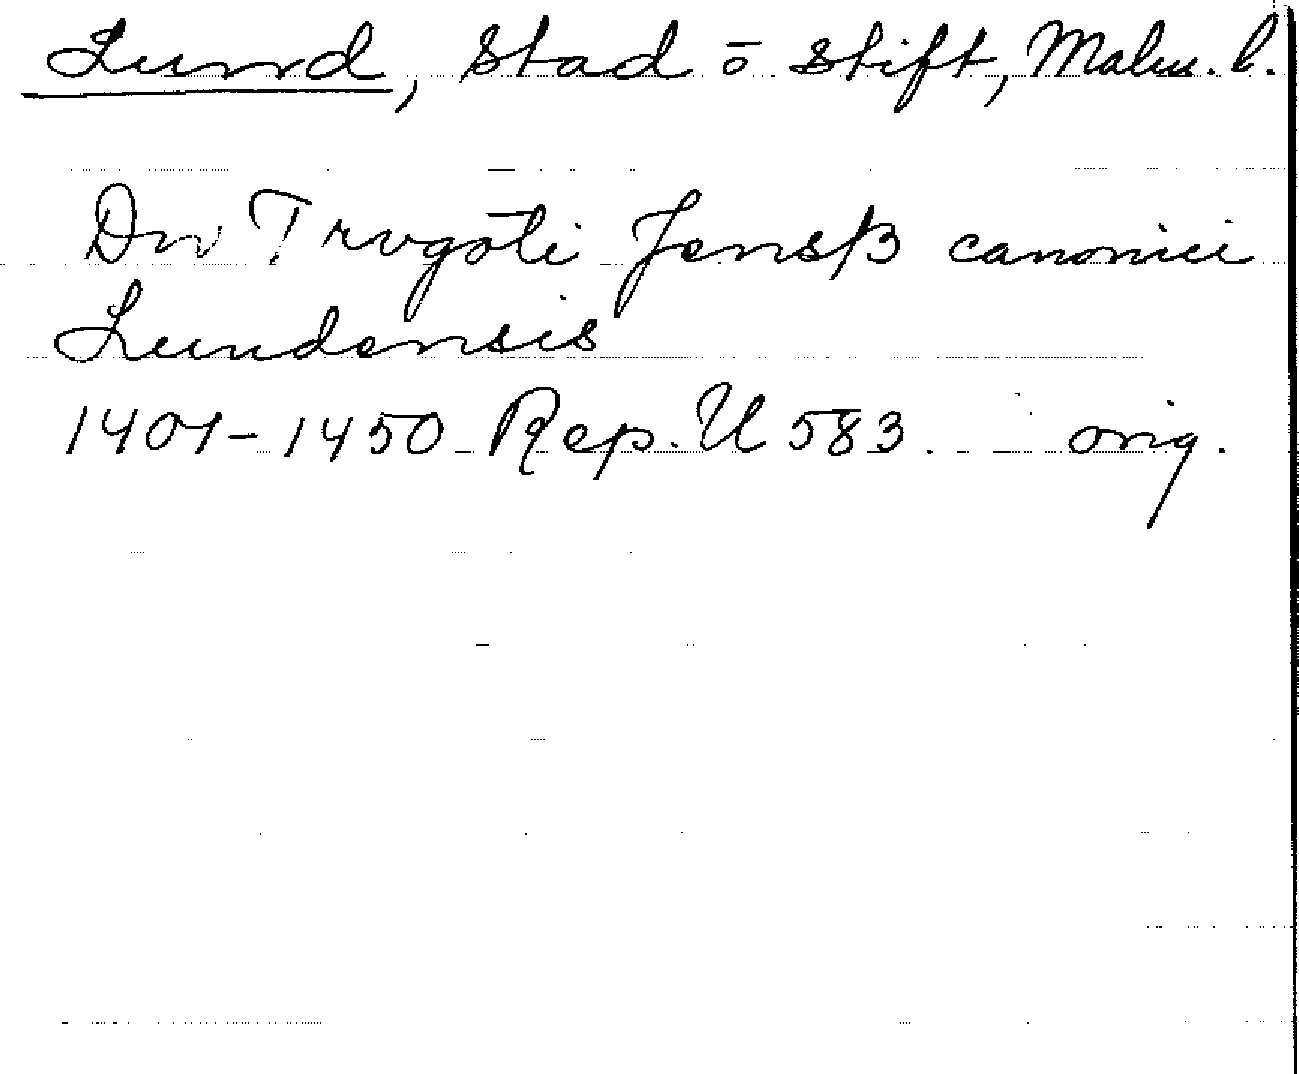 Lund, Stad o stift, Malm. l.
Dn Trvgoti Jensß canonici
Lundensis
1401-1450 Rep. U 583. orig.